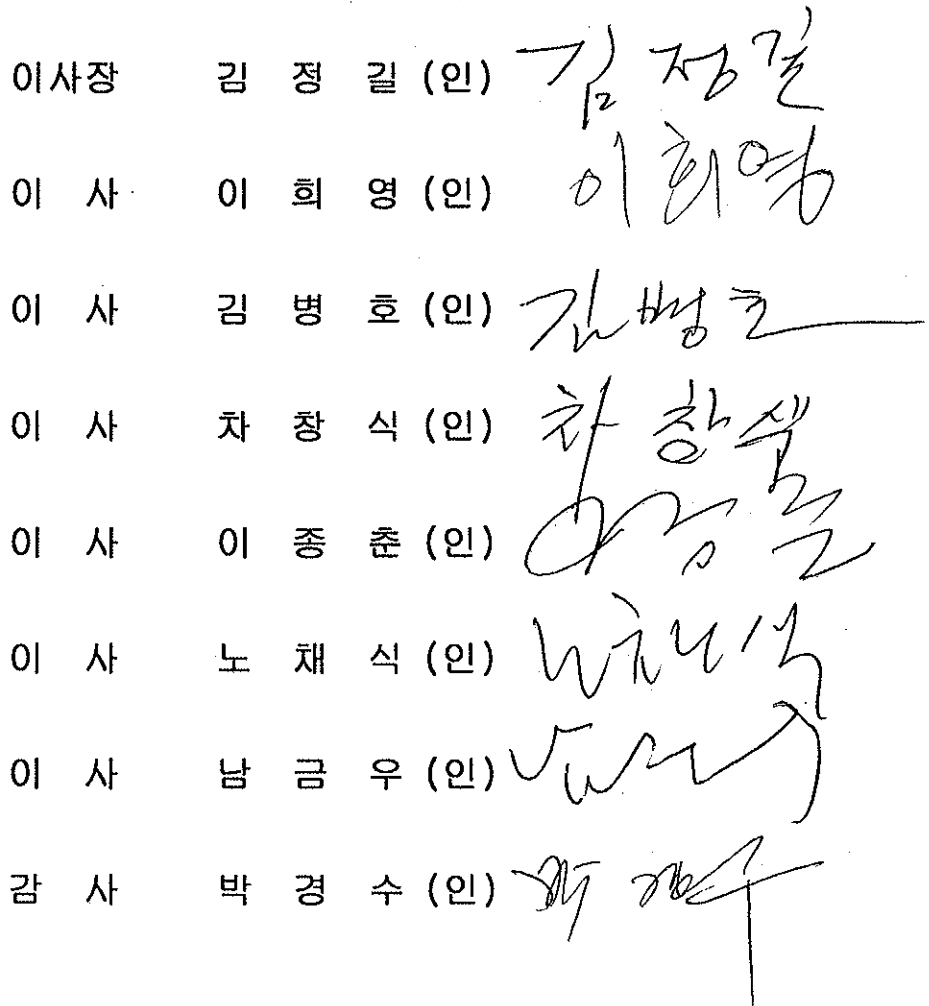 이사장 김 정 길 (인) 김정길
이 사 이 희 영 (인) 이희영
이 사 김 병 호 (인) 김병호
이 사 차 창 식 (인) 차창식
이 사 이 종 춘 (인)
이 사 노 채 식 (인)
이 사 남 금 우 (인)
감 사 박 경 수 (인)